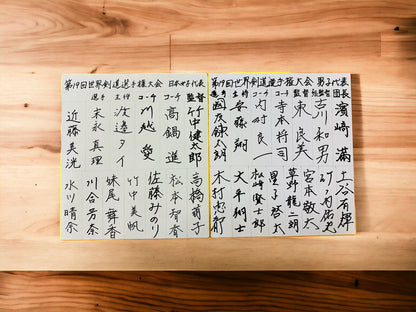 第19回世界剣道選手権大会 男子代表
団長
総監督
監督
コーチ
コーチ
主将
選手
濱崎 満
古川和男
東 良美
寺本将司
内村良一
安藤 翔
國友鍊太朗
土谷有輝
竹ノ内佑也
宮本敬太
草野龍二朗
星子啓太
松﨑賢士郎
大平翔士
木村恵都
第19回世界剣道選手権大会 日本女子代表
監督
コーチ
コーチ
主将
選手
竹中健太郎
高鍋 進
川越 愛
渡邊タイ
末永真理
近藤美洸
高橋萌子
松本智香
佐藤みのり
竹中美帆
妹尾舞香
川合芳奈
水川晴奈